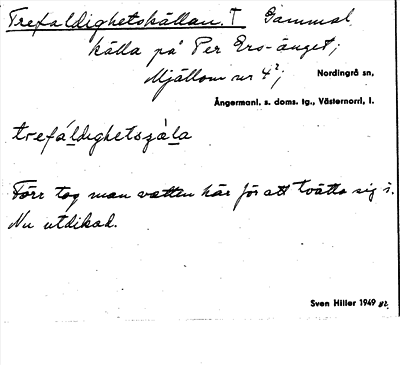 Trefaldighetskällan. † Gammal
källa på Per Ers-änget;
Mjällom nr 4²; Nordingrå sn,
Ångermanl. s. doms. tg., Västernorrl. l.
trefáldighetsçäla
Förr tog man vatten här för att tvätta sig i.
Nu utdikad.
Sven Hiller 1949